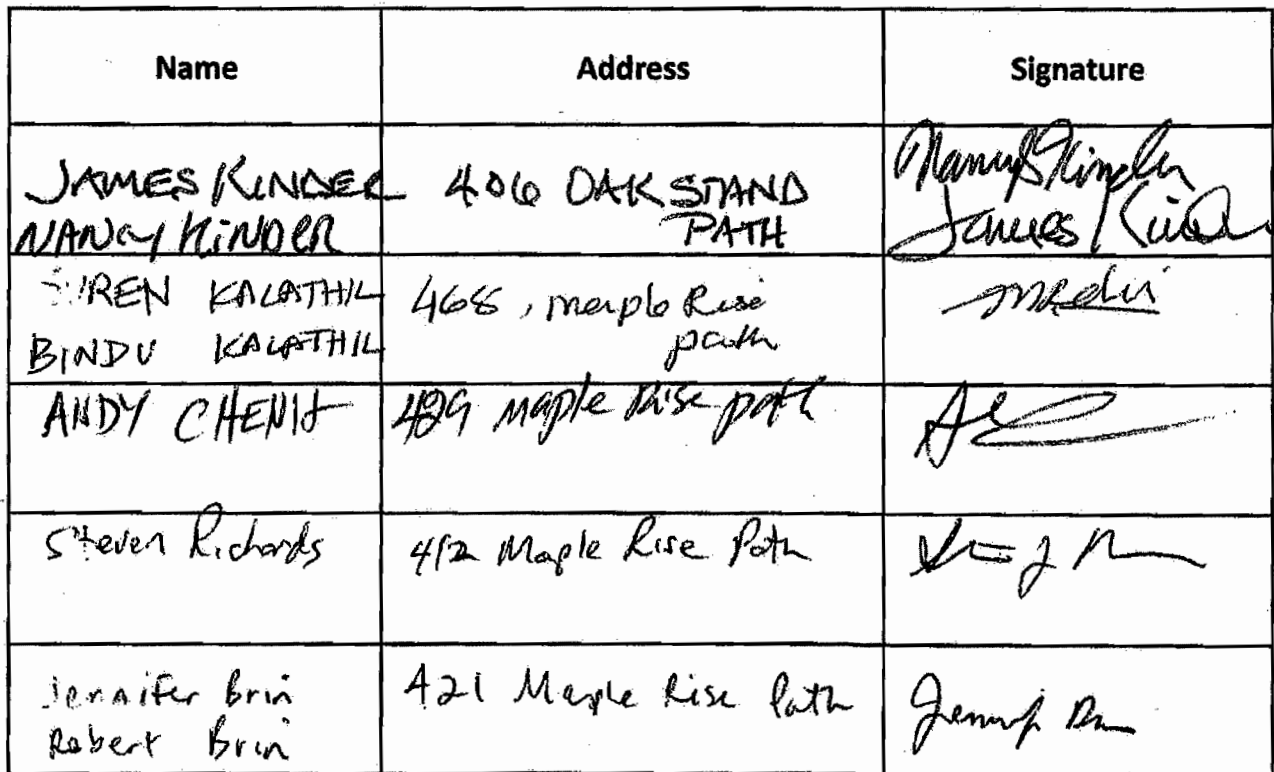 Name Address Signature
JAMES KINDER 406 OAK STAND
PATH
NANCY KINDER
Nancy Kinder
James Kinder
KALATHIL
BINDU KALATHIL
468, maple Rise
path
ANDY 429 maple Rise path
Steven Richards 412 Maple Rise Path
Jennifer Brin
Robert Brin
421 Maple Rise Path